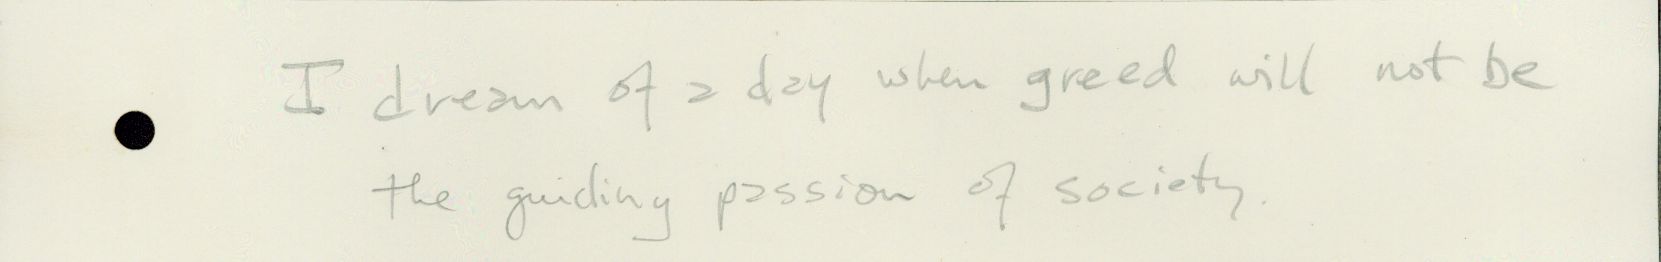 I dream of a day when greed will not be
the guiding passion of society.